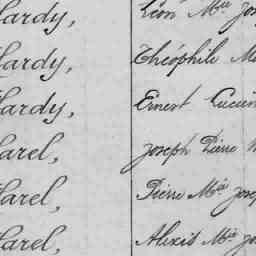 Hardy, Léon Mie Jos
Hardy, Théophile M
Hardy, Ernest Lucien
Harel, Joseph Pierre M
Harel, Pierre Mie Jose
Harel, Alexis Mie Jo